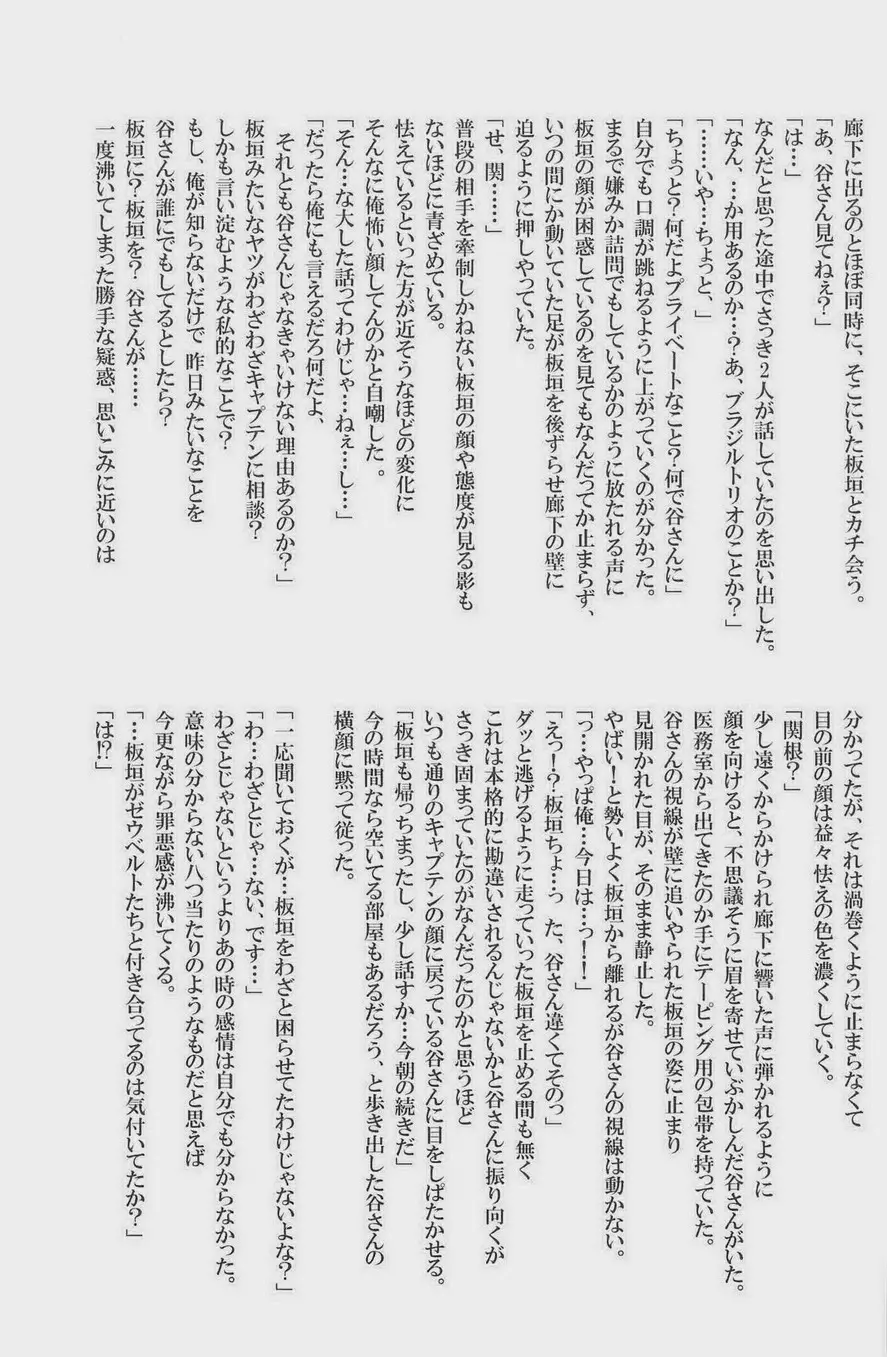 廊下に出るのとほぼ同時に、そこにいた板垣とカチ会う。
「あ、谷さん見てねぇ？」
「は…」
なんだと思った途中でさっき２人が話していたのを思い出した。
「なん、…か用あるのか…？あ、ブラジルトリオのことか？」
「……いや…ちょっと、」
「ちょっと？何だよプライベートなこと？何で谷さんに」
自分でも口調が跳ねるように上がっていくのが分かった。
まるで嫌みか詰問でもしているかのように放たれる声に
板垣の顔が困惑しているのを見てもなんだってか止まらず、
いつの間にか動いていた足が板垣を後ずらせ廊下の壁に
迫るように押しやっていた。
「せ、関……」
普段の相手を牽制しかねない板垣の顔や態度が見る影も
ないほどに青ざめている。
怯えているといった方が近そうなほどの変化に
そんなに俺怖い顔してんのかと自嘲した 。
「そん…な大した話ってわけじゃ…ねぇ…し…」
「だったら俺にも言えるだろ何だよ、
それとも谷さんじゃなきゃいけない理由あるのか？」
板垣みたいなヤツがわざわざキャプテンに相談？
しかも言い淀むような私的なことで？
もし、俺が知らないだけで 昨日みたいなことを
谷さんが誰にでもしてるとしたら？
板垣に？板垣を？ 谷さんが……
一度沸いてしまった勝手な疑惑、思いこみに近いのは
分かってたが、それは渦巻くように止まらなくて
目の前の顔は益々怯えの色を濃くしていく。
「関根？」
少し遠くからかけられ廊下に響いた声に弾かれるように
顔を向けると、不思議そうに眉を寄せていぶかしんだ谷さんがいた。
医務室から出てきたのか手にテーピング用の包帯を持っていた。
谷さんの視線が壁に追いやられた板垣の姿に止まり
見開かれた目が、そのまま静止した。
やばい！と勢いよく板垣から離れるが谷さんの視線は動かない。
「っ…やっぱ俺…今日は…っ！！」
「えっ！？板垣ちょ…っ　た、谷さん違くてそのっ」
ダッと逃げるように走っていった板垣を止める間も無く
これは本格的に勘違いされるんじゃないかと谷さんに振り向くが
さっき固まっていたのがなんだったのかと思うほど
いつも通りのキャプテンの顔に戻っている谷さんに目をしぱたかせる。
「板垣も帰っちまったし、少し話すか…今朝の続きだ」
今の時間なら空いてる部屋もあるだろう、と歩き出した谷さんの
横顔に黙って従った。
「一応聞いておくが…板垣をわざと困らせてたわけじゃないよな？」
「わ…わざとじゃ…ない、です…」
わざとじゃないというよりあの時の感情は自分でも分からなかった。
意味の分からない八つ当たりのようなものだと思えば
今更ながら罪悪感が沸いてくる。
「…板垣がゼウベルトたちと付き合ってるのは気付いてたか？」
「は!?」